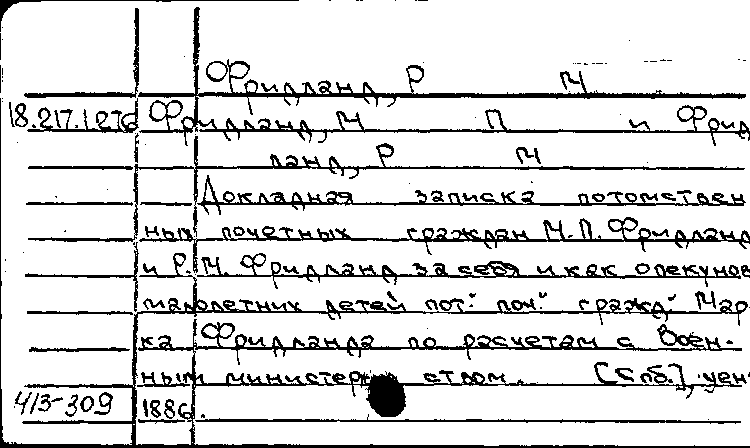 Фридланд, Р М
18.217.1.276 Фридланд, М П и Фрид
ланд, Р М
Докладная записка потомствен
ных почетных граждан М.П. Фридланд
и Р.М. Фридланд за себя и как опекунов
малолетних детей пот. поч. гражд. Мар
ка Фридланда по расчетам с Воен-
ным министерством. [Спб.], ценз.
413-309 1886.